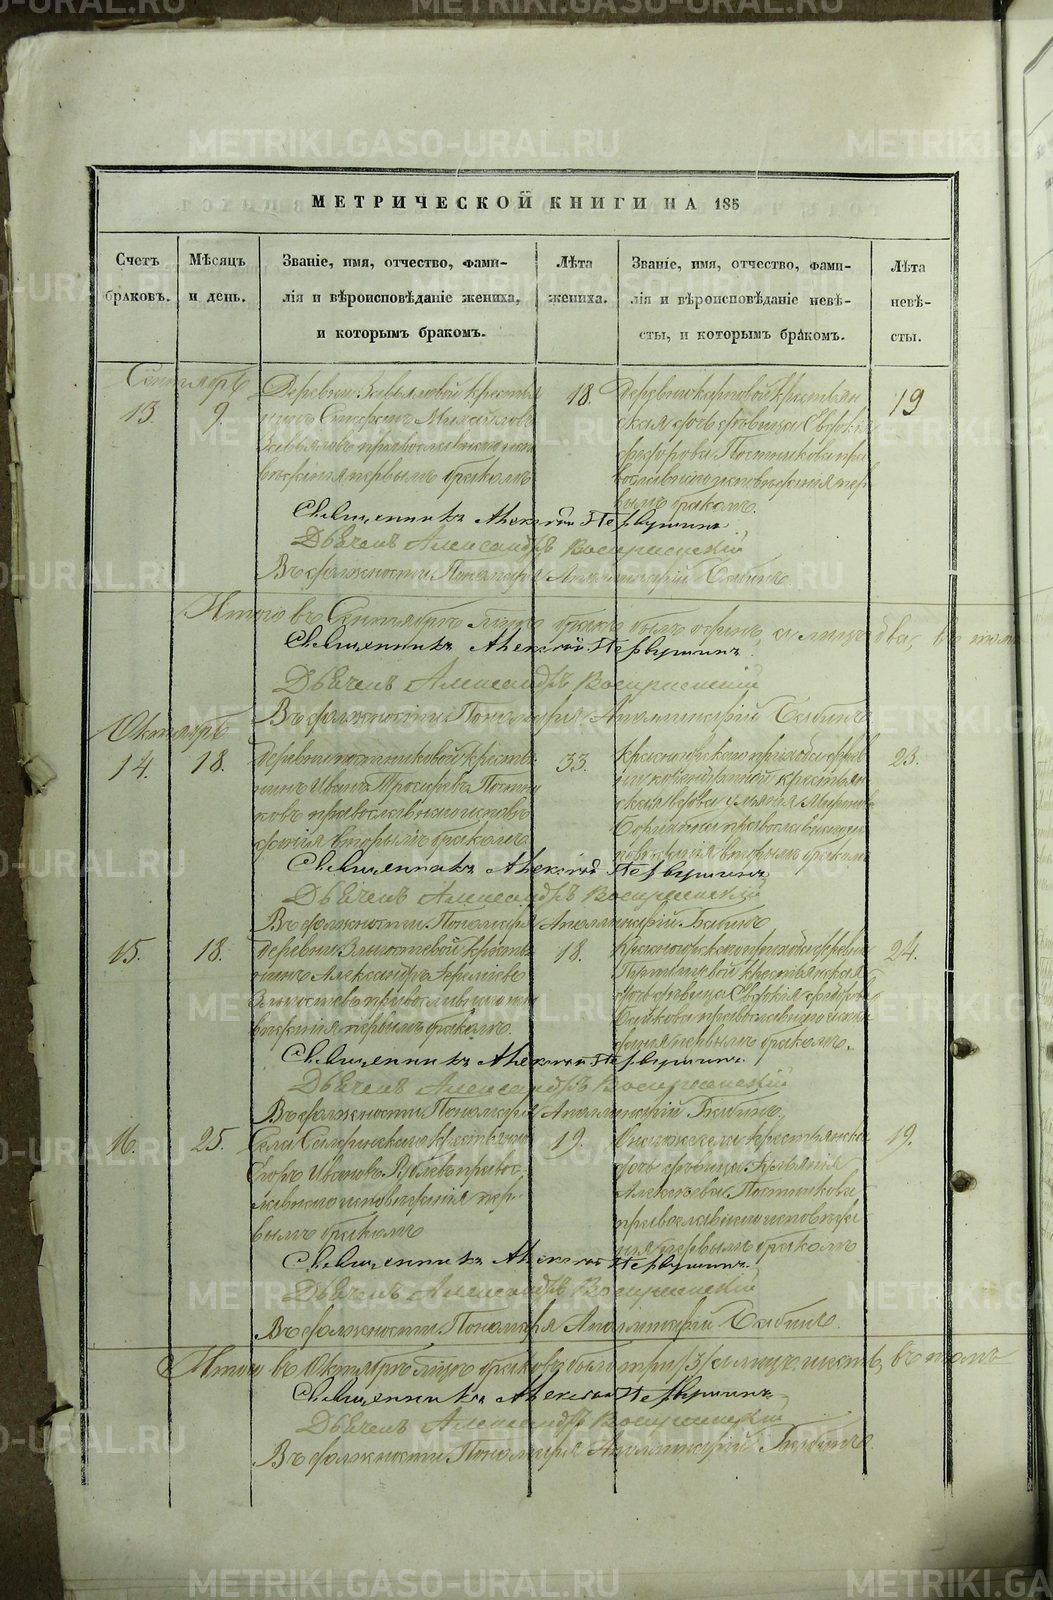 МЕТРИЧЕСКОЙ КНИГИ НА 185
Счетъ браковъ.
Мѣсяцъ и день.
Званіе, имя, отчество, фами-
лія и вѣроисповѣданіе жениха,
и которымъ бракомъ.
Лѣта
жениха.
Званіе, имя, отчество, фами-
лія и вѣроисповѣданіе невѣ-
сты, и которымъ бракомъ.
Лѣта
невѣ-
сты.
Сентябрь
13
9.
Деревни Завьяловой крестья
нинъ Стефанъ Михайловъ
Завьяловъ православнаго испо
вѣданія первымъ бракомъ
18.
Деревни крестьян
ская дочь дѣвица Евдокія
Федорова Постникова пра
вославнаго исповѣданія пер
вымъ бракомъ.
19
Священникъ Алексѣй Первушинъ
Дьячекъ Александръ Воскресенскій
Въ должности Пономаря Аполлинарій Бабинъ
Итого въ Сентябрѣ мѣсяцѣ бракъ былъ одинъ, а лицъ два, въ томъ
Священникъ Алексѣй Первушинъ
Дьячекъ Александръ Воскресенскій
Въ должности Пономаря Аполлинарій Бабинъ
Октябрь
14.
18.
Деревни Постниковой кресть
нинъ Иванъ Постни
ковъ православнаго исповѣ
данія вторымъ бракомъ
33.
Красноярскаго прихода дерев
ни крестьян
ская вдова
православнаго ис
повѣданія вторымъ бракомъ
23.
Священникъ Алексѣй Первушинъ
Дьячекъ Александръ Воскресенскій
Въ должности Пономаря Аполлинарій Бабинъ
15.
18.
Деревни кресть
нинъ Александръ
православнаго испо
вѣданія первымъ бракомъ.
18.
Красноярскаго прихода деревни
крестьянская
дочь дѣвица Евдокія Федорова
православнаго испо
данія первымъ бракомъ.
24.
Священникъ Алексѣй Первушинъ
Дьячекъ Александръ Воскресенскій
Въ должности Пономаря Аполлинарій Бабинъ.
16.
25.
Села крестьянинъ
Егоръ Ивановъ правос
лавнаго исповѣданія пер
вымъ бракомъ
19.
Онагожъ села крестьянская
дочь дѣвица
Алексѣева Постникова
православнаго исповѣда
нія первымъ бракомъ
19.
Священникъ Алексѣй Первушинъ.
Дьячекъ Александръ Воскресенскій
Въ должности Пономаря Аполлинарій Бабинъ.
Итого въ Октябрѣ мѣсяцѣ браковъ было три /3/ а лицъ шесть, въ томъ
Священникъ Алексѣй Первушинъ
Дьячекъ Александръ Воскресенскій
Въ должности Пономаря Аполлинарій Бабинъ.
METRIKI.GASO-URAL.RU